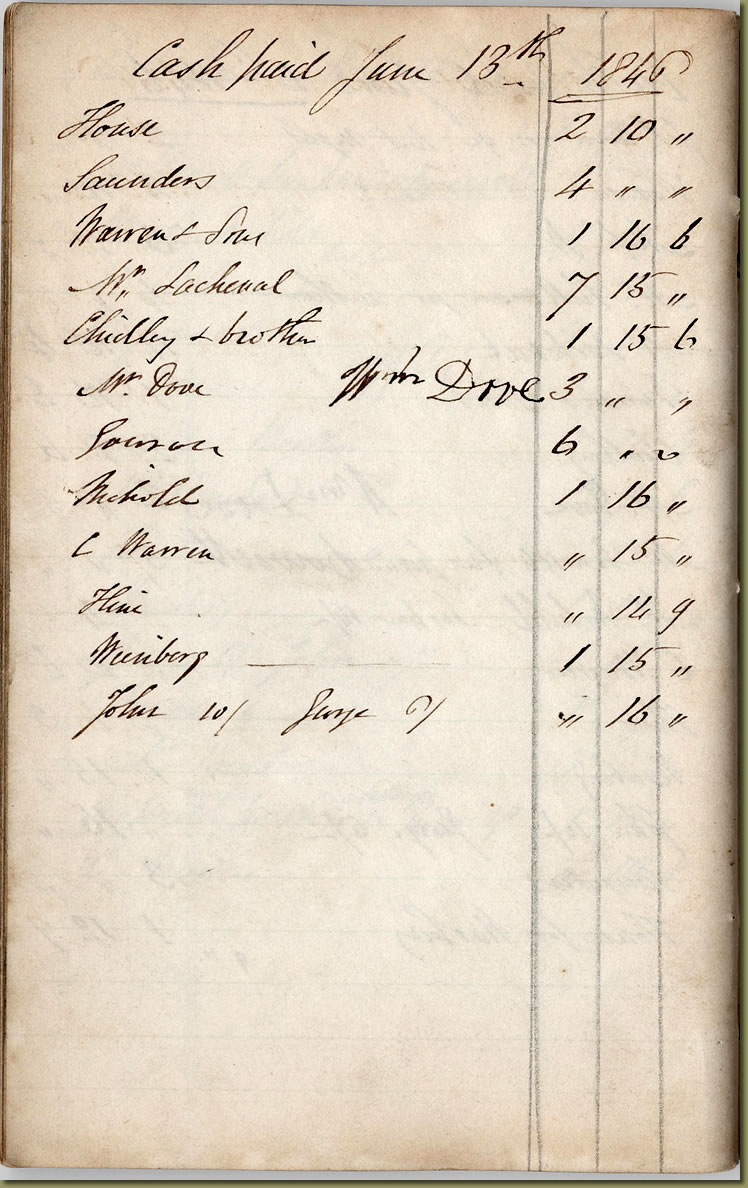 Cash paid June 13th 1846
House 2 10 "
Saunders 4 " "
Warren & Son 1 16 6
Mr Lachenal 7 15 "
Chidley & brother 1 15 6
Mr. Dove Wm Dove 3 " "
6 " "
Nickold 1 16 "
C Warren " 15 "
Hine " 14 9
Wienberg 1 15 "
John 10/ George 6/ " 16 "